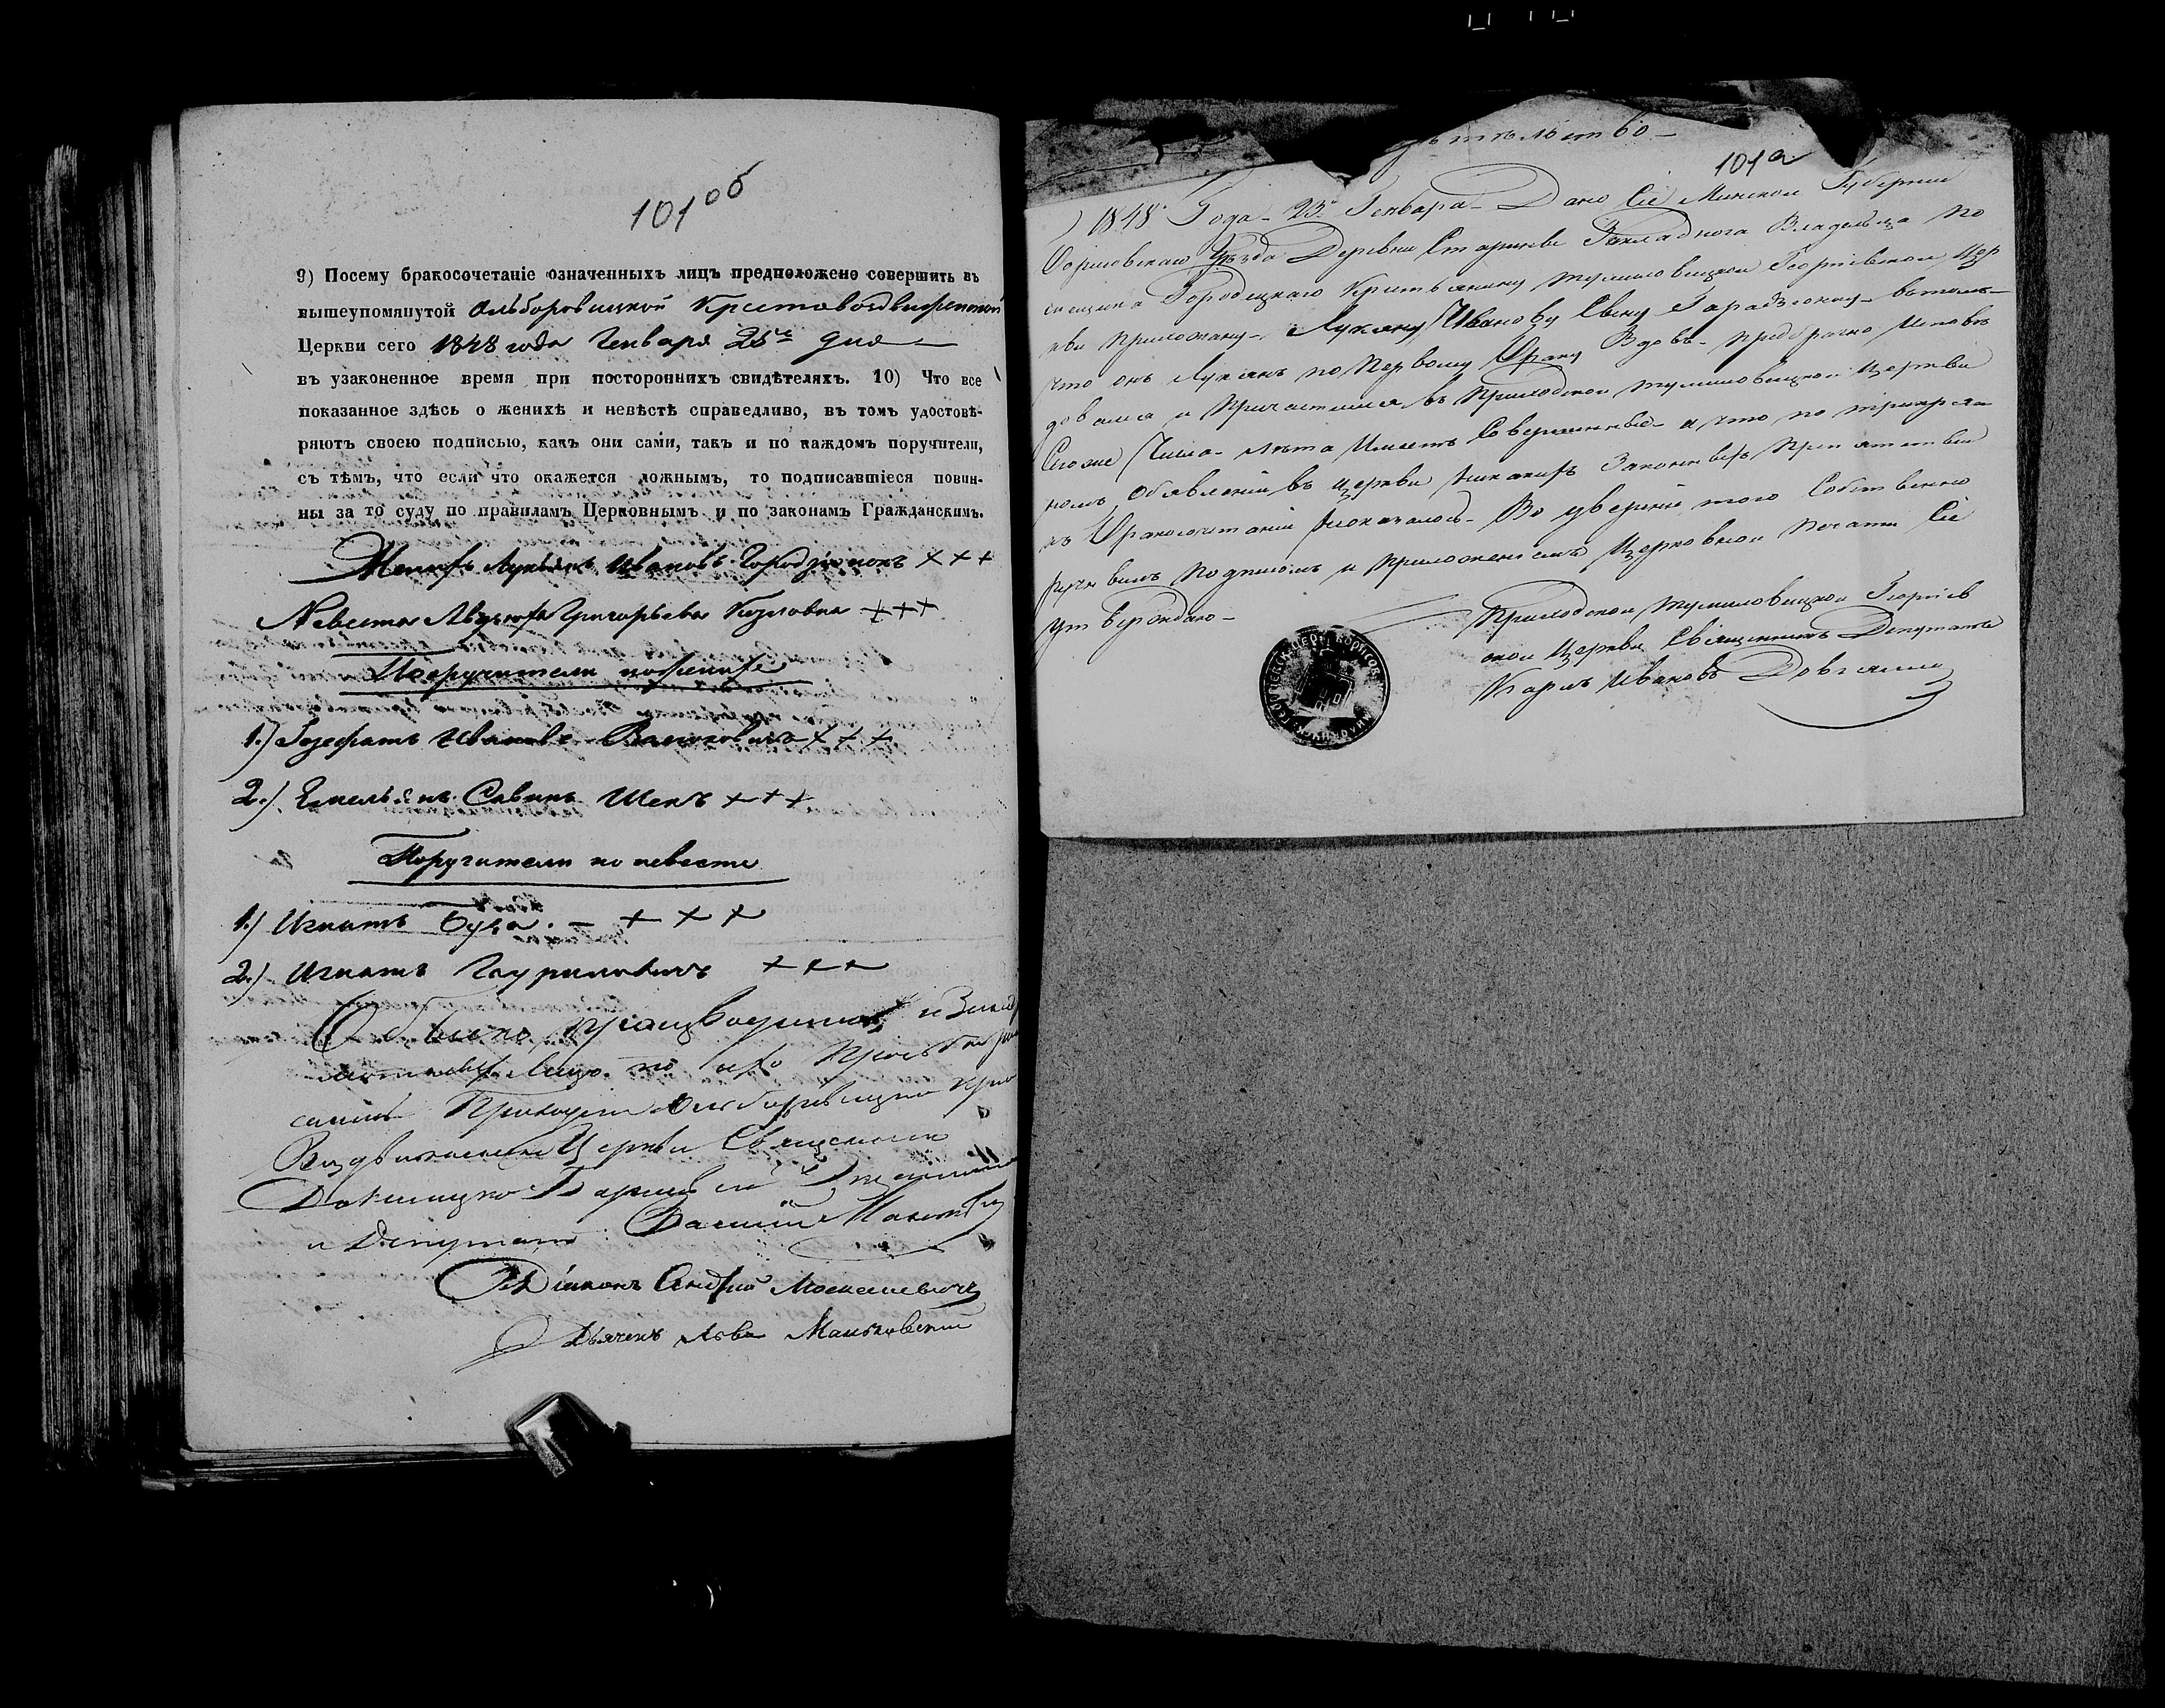 101об
9) Посему бракосочетаніе означенныхъ лицъ предположено совершить въ
вышеупомянутой Ольборовицкой Крестовоздвиженской
Церкви сего 1848 года Генваря 25го дня
въ узаконенное время при постороннихъ свидѣтеляхъ. 10) Что все
показанное здѣсь о женихѣ и невѣстѣ справедливо, въ томъ удостовѣ-
ряютъ своею подписью, какъ они сами, такъ и по каждомъ поручители,
съ тѣмъ, что если что окажется ложнымъ, то подписавшіеся повин-
ны за то суду по правиламъ Церковнымъ и по законамъ Гражданскимъ.
Женихъ Лукьянъ Ивановъ Городзіонокъ + + +
Невеста Григорьева Козловна + + +
Поручители по женихе
1.) Іозефатъ Ивановъ + + +
2.) Емельянъ Савинъ Шекъ + + +
Поручители по невесте
1.) Игнатъ Буза. – + + +
2.) Игнатъ Гауриловичъ + + +
Обыскъ производилъ и
лицъ по ихъ прозбе
Приходской Ольборовицкой
Воздвиженской Церкви Священникъ
Докшицко Борисовскій
и Депутатъ Василій
Діаконъ Андрей Моисеевичъ
Дьячекъ Левъ Маньковскій
101а
1848 Года 23 Генваря Дано Сіе Минской Губерніи
Борисовскаго Уѣзда Деревни Старинки Закладнога Владельца По
мещика Городецкаго Крестьянину Тумиловицкой Георгіевской Цер
кви прихожану Лукяну Иванову Сыну Гарадзіонку въ томъ
что онъ Лукіянъ по Первому Браку Вдовъ предбрачно Исповѣ
довался и Причастился въ Приходской Тумиловицкой Церкви
Сегоже Числа лѣта Имеетъ Совершенные а что по трикрат
номъ Объявленіи въ Церкви никакихъ Законныхъ Препятствій
къ Бракосочетанію неоказалось Во увереніе того Собственно
ручнымъ подписомъ и приложеніемъ Церковной Печати Сіе
утверждаю
Приходской Тумиловицкой Георгіев
ской Церкви Священникъ Депутатъ
Карлъ Ивановъ Довгялло